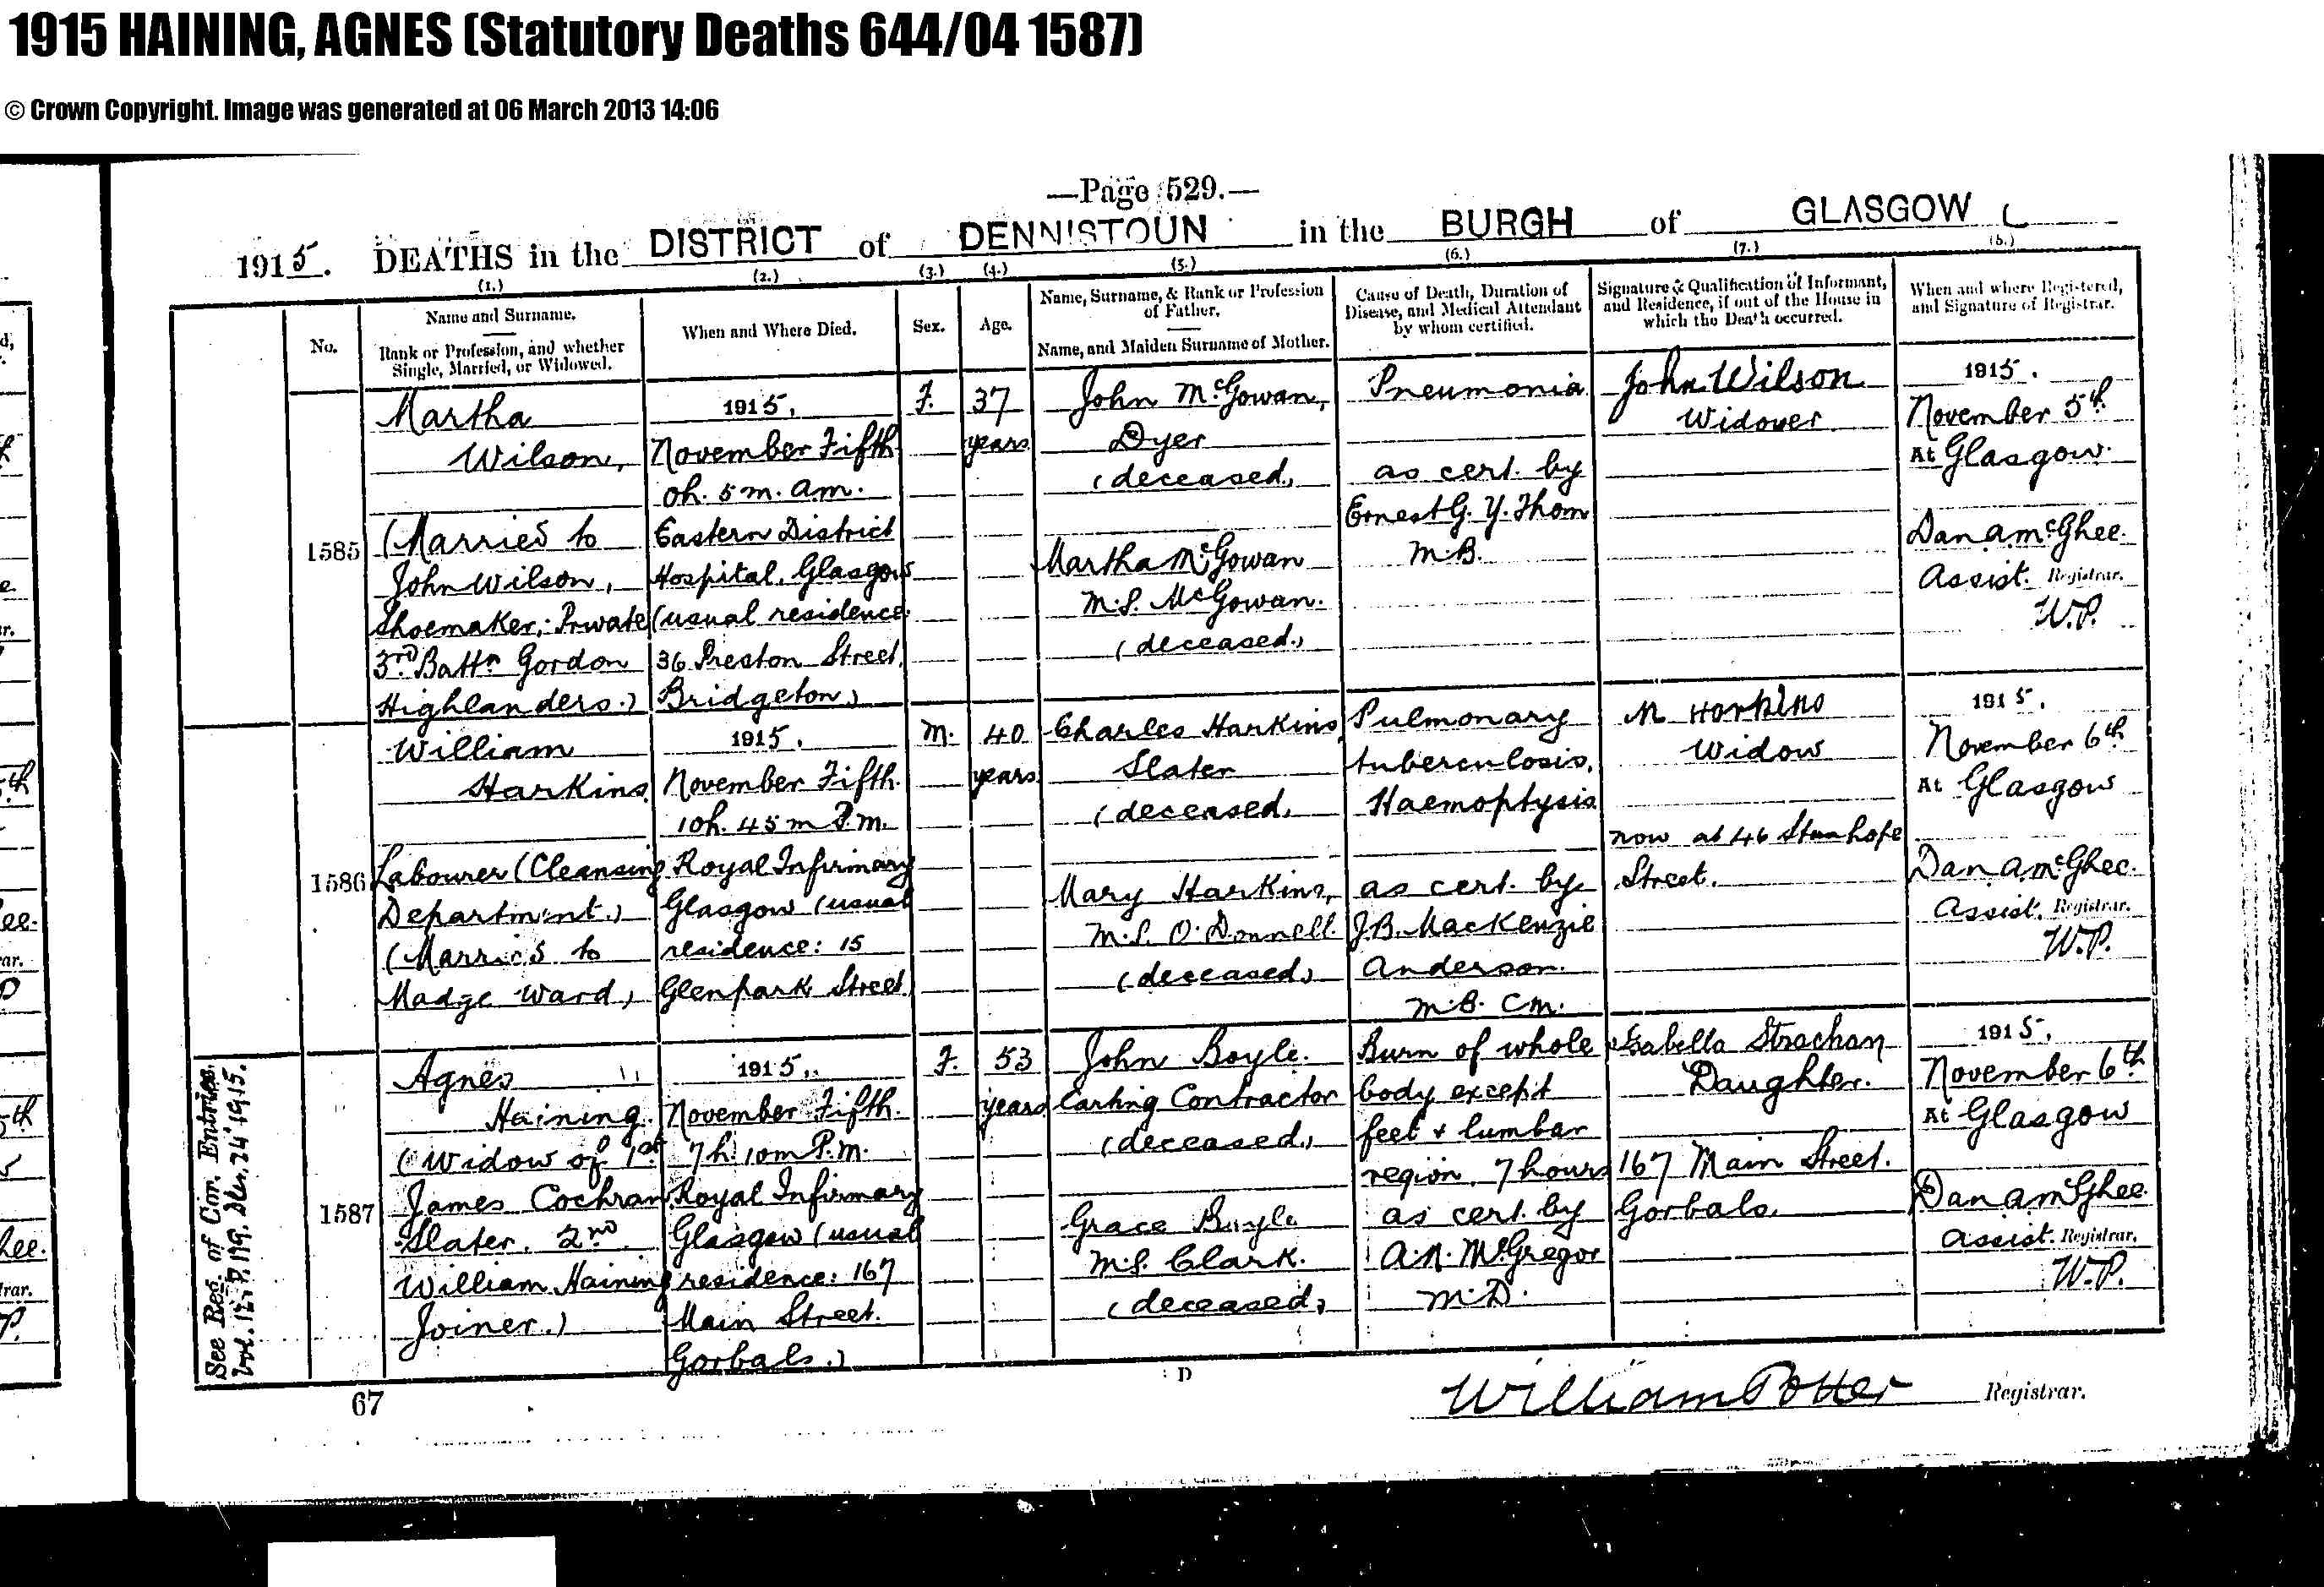 1915 HAINING, AGNES (Statutory Deaths 644/04 1587)
© Crown Copyright. Image was generated at 06 March 2013 14:06
—Page 529.—
1915. DEATHS in the DISTRICT of DENNISTOUN in the BURGH of GLASGOW
(1.) (2.) (3.) (4.) (5.) (6.) (7.) (8.)
No.
Name and Surname.
Rank or Profession, and whether
Single, Married, or Widowed.
When and Where Died.
Sex.
Age.
Name, Surname, & Rank or Profession
of Father.
Name, and Maiden Surname of Mother.
Cause of Death, Duration of
Disease, and Medical Attendant
by whom certified.
Signature & Qualification of Informant,
and Residence, if out of the House in
which the Death occurred.
When and where Registered,
and Signature of Registrar.
1585
Martha
Wilson,
(Married to
John Wilson,
Shoemaker; Private
3rd Battn Gordon
Highlanders.)
1915.
November Fifth
0h. 5m. a.m.
Eastern District
Hospital, Glasgow
(usual residence
36 Preston Street,
Bridgeton)
F.
37
years
John McGowan,
Dyer
(deceased)
Martha McGowan
M.S. McGowan.
(deceased)
Pneumonia
as cert. by
Ernest G. Y. Thom
M.B.
John Wilson
Widower
1915.
November 5th
At Glasgow.
Dan A McGhee.
Assist. Registrar.
W.P.
1586
William
Harkins
Labourer (Cleansing
Department)
(Married to
Madge Ward)
1915.
November Fifth.
10h. 45m P.m.
Royal Infirmary
Glasgow (usual
residence: 15
Glenpark Street)
M.
40
years
Charles Harkins,
Slater
(deceased)
Mary Harkins,
M.S. O'Donnell.
(deceased)
Pulmonary
tuberculosis.
Haemoptysis
as cert. by
J.B. MacKenzie
Anderson.
M.B. C.M.
M Harkins
Widow
now at 46 Stanhope
Street.
1915.
November 6th
At Glasgow
Dan A McGhee.
Assist. Registrar.
W.P.
See Reg. of Cor. Entries
Vol. P. 119. Dec. 24th 1915.
1587
Agnes
Haining.
(Widow of 1st
James Cochran
Slater. 2nd
William Haining
Joiner.)
1915.
November Fifth.
7h. 10m P.m.
Royal Infirmary
Glasgow (usual
residence: 167
Main Street.
Gorbals.)
F.
53
years
John Boyle.
Carting Contractor
(deceased)
Grace Boyle
M.S. Clark.
(deceased)
Burn of whole
body except
feet & lumbar
region. 7 hours
as cert. by
A.N. McGregor
M.D.
Isabella Strachan
Daughter.
167 Main Street.
Gorbals.
1915.
November 6th
At Glasgow
Dan A McGhee.
Assist. Registrar.
W.P.
67
D
William Potter Registrar.